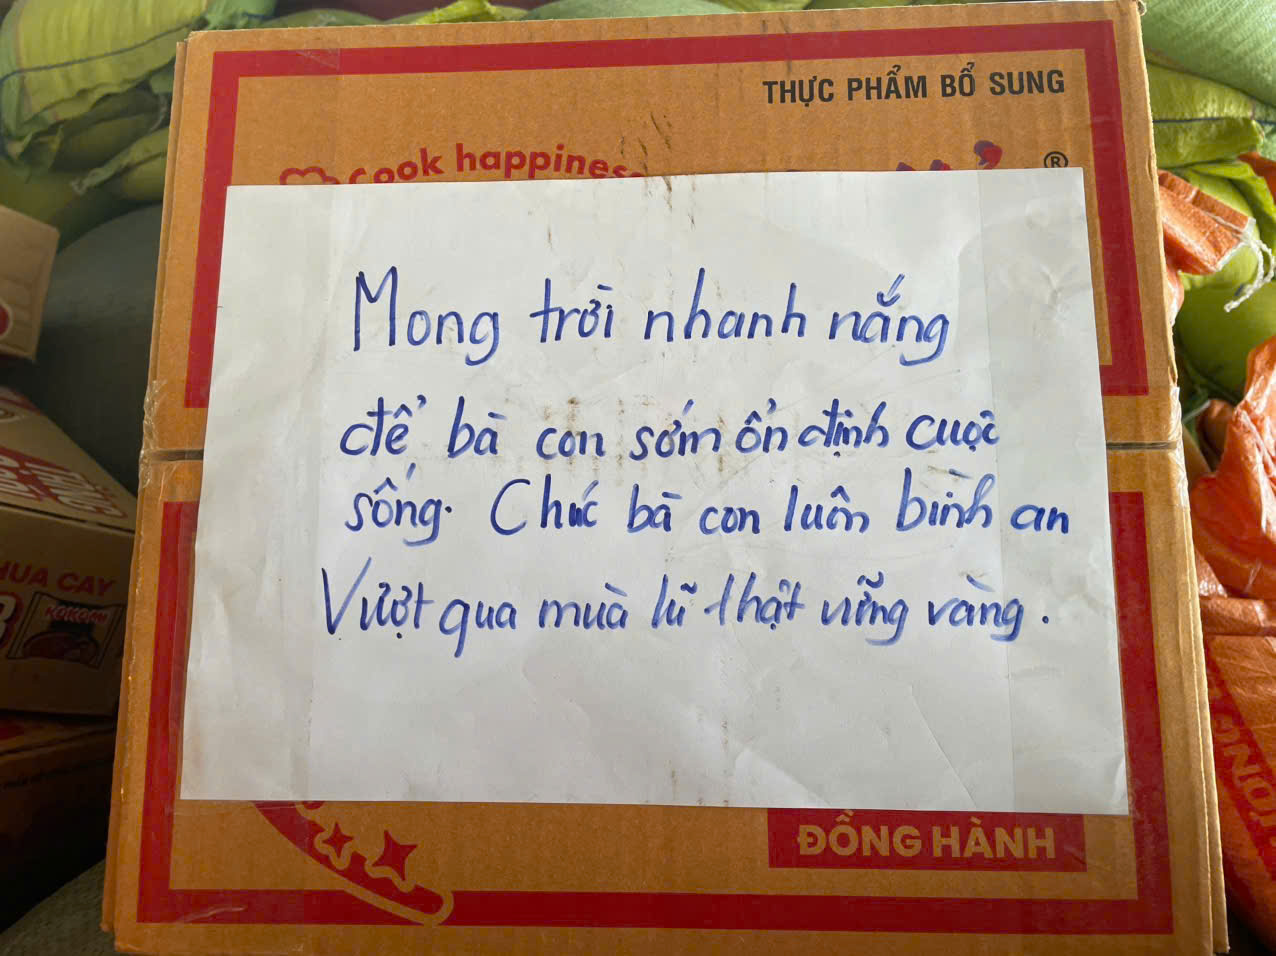 THỰC PHẨM BỔ SUNG
Cook happines
®
Mong trời nhanh nắng
để bà con sớm ổn định cuộc
sống. Chúc bà con luôn bình an
Vượt qua mùa lũ thật vững vàng.
HUA CAY
KOKOMI
ĐỒNG HÀNH